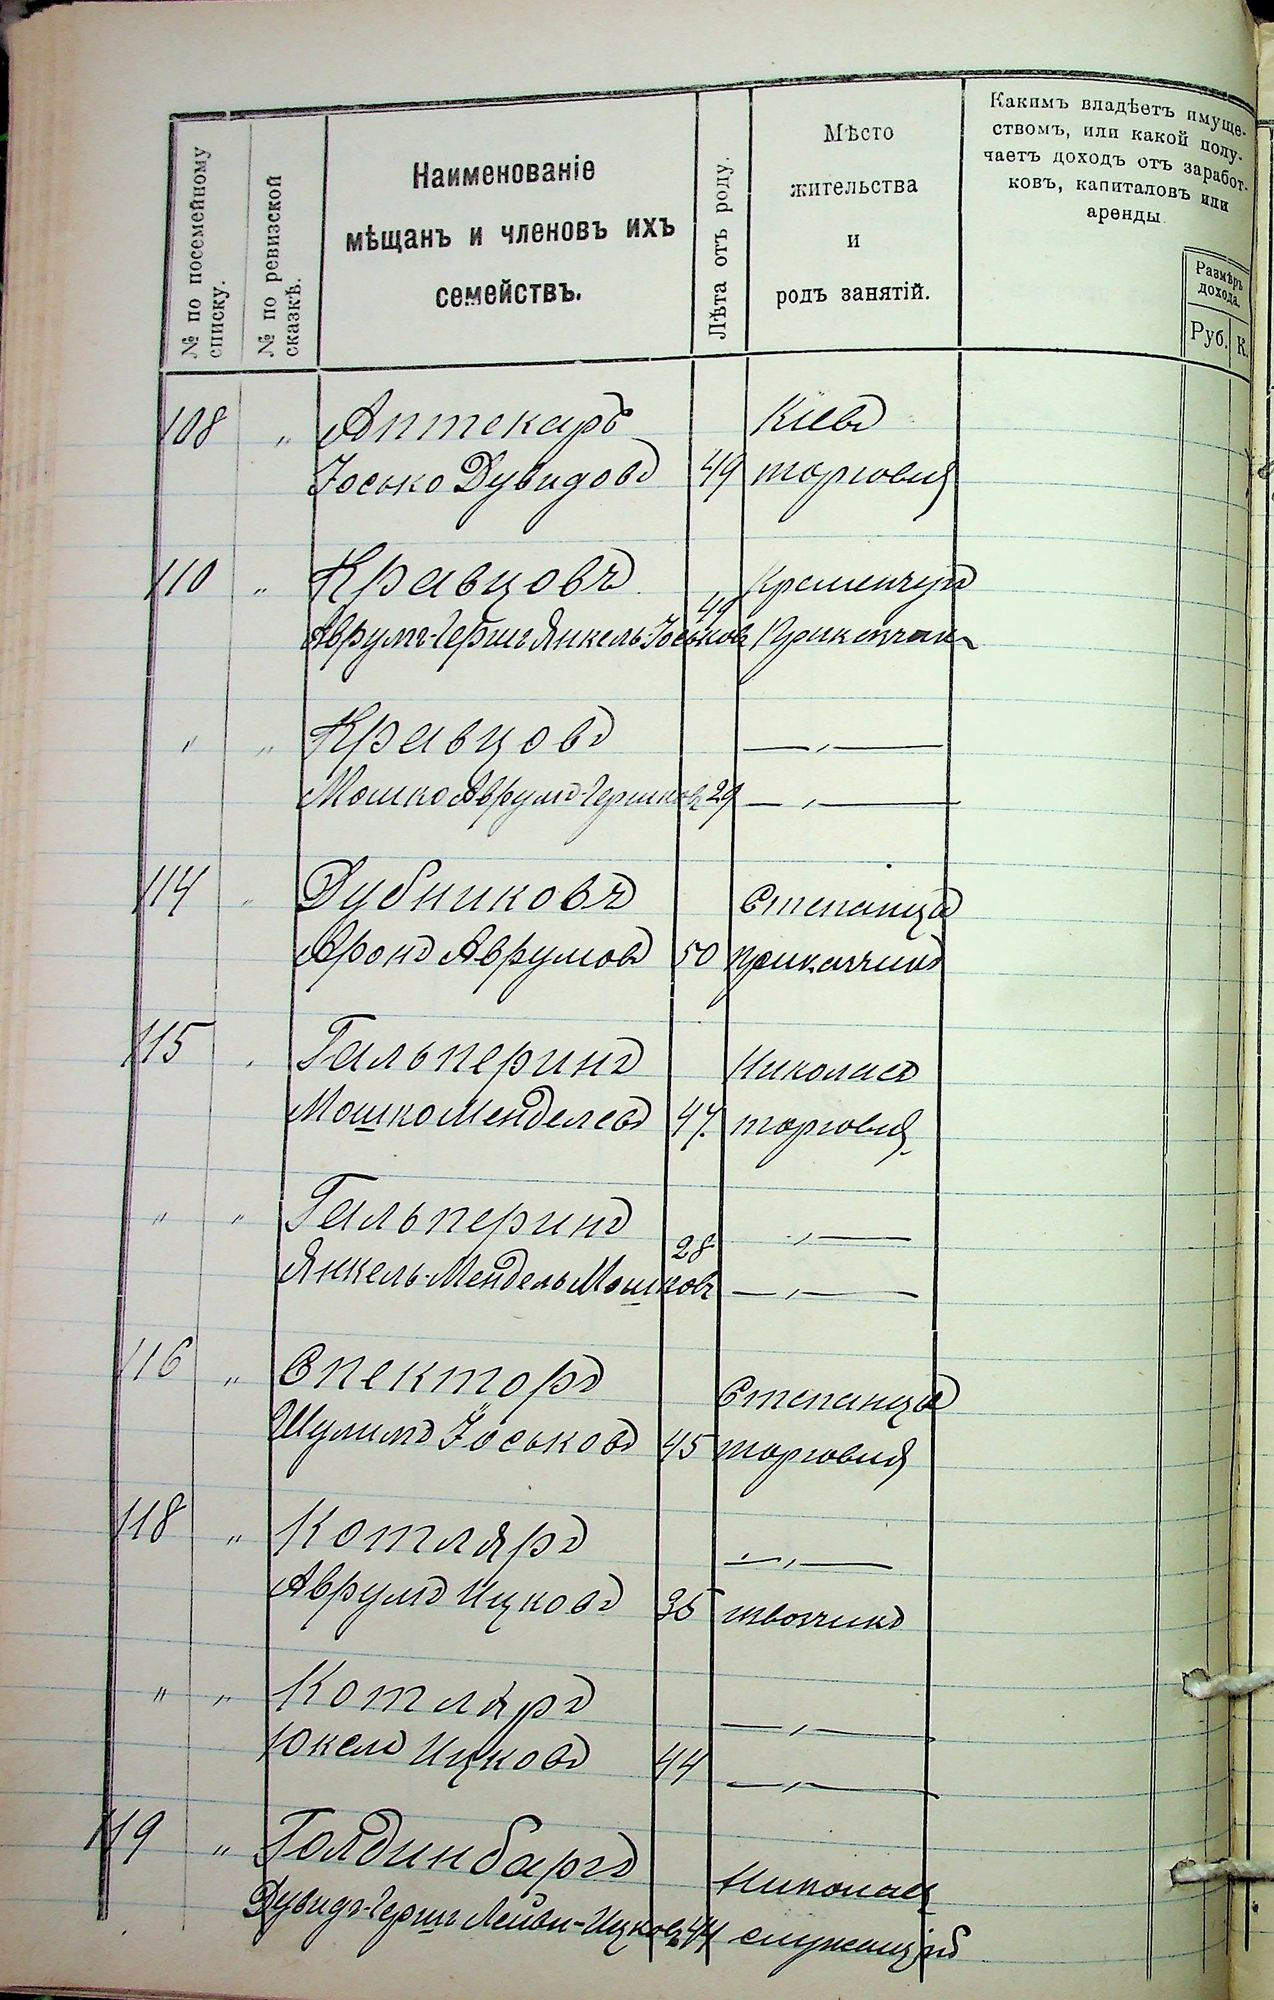 № по посемейному
списку.
№ по ревизской
сказкѣ.
Наименованіе
мѣщанъ и членовъ ихъ
семействъ.
Лѣта отъ роду.
Мѣсто
жительства
и
родъ занятій.
Какимъ владѣетъ имуще-
ствомъ, или какой полу-
чаетъ доходъ отъ заработ-
ковъ, капиталовъ или
аренды.
Размѣръ
дохода.
Руб. К.
108 „ Аптекарь Кіевъ
Іосько Дувидовъ 49 торговля
110 „ Кравцовъ Кременчугъ
Аврумъ-Гершъ Янкель-Іоськовъ 49 Приказчикъ
„ „ Кравцовъ — „ —
Мошко Аврумъ-Гершковъ 29 — „ —
114 „ Дубниковъ Степанцы
Аронъ Аврумовъ 50 приказчикъ
115 „ Гальперинъ Николаевъ
Мошко Менделевъ 47. торговля
„ „ Гальперинъ „ —
Янкель-Мендель Мошковъ 28 — „ —
116 „ Спекторъ Степанцы
Шулимъ Іоськовъ 45 торговля
118 „ Котляръ — „ —
Аврумъ Ицковъ 35
„ „ Котляръ — „ —
Юкель Ицковъ 44 — „ —
119 „ Голдинбаргъ Николаев
Дувидъ-Гершъ Лейви-Ицковъ 44 служащій